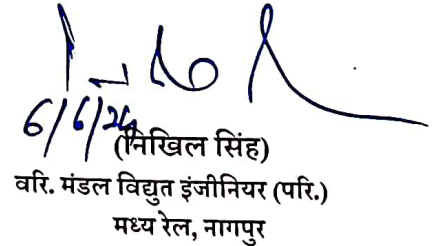 6/6/24
(निखिल सिंह)
वरि. मंडल विद्युत इंजीनियर (परि.)
मध्य रेल, नागपुर